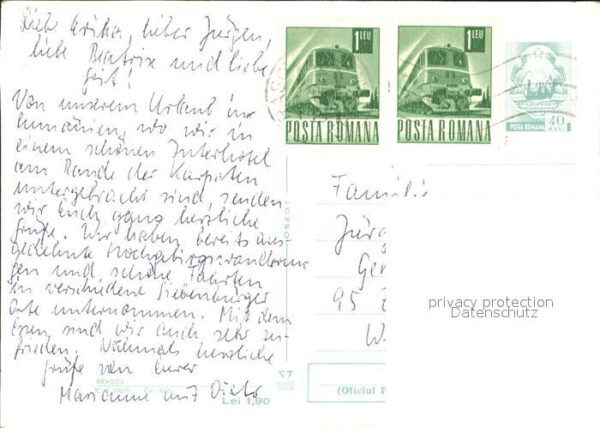 Liebe Erika, lieber Jürgen,
liebe Beatrix und liebe
Grit!
Von unserem Urlaub in
Rumänien, wo wir in
einem schönen Interhotel
am Rande der Karpaten
untergebracht sind, senden
wir Euch ganz herzliche
Grüße. Wir haben bereits aus
gedehnte Hochgebirgswanderun
gen und schöne Fahrten
in verschiedene Siebenbürger
Orte unternommen. Mit dem
Essen sind wir auch sehr zu-
frieden. Nochmals herzliche
Grüße von Eurer
Marianne und Dieter
BRASOV
Lei 1,90
1 LEU
POSTA ROMANA
1 LEU
POSTA ROMANA
POSTA ROMANA
40
BANI
Famili
Jür
Ge
95
W
privacy protection
Datenschutz
(Oficiul P